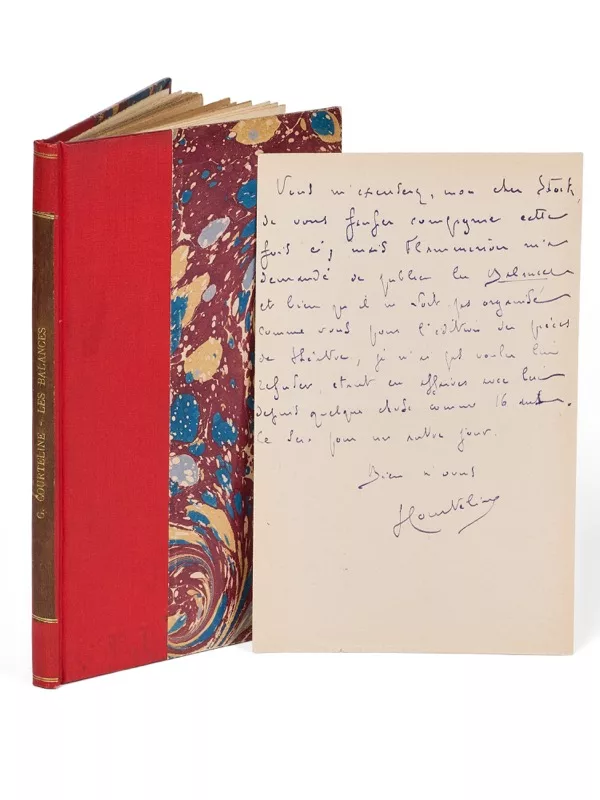 G. COURTELINE - LES BALANCES
Vous m'excuserez, mon cher Stock,
de vous fausser compagnie cette
fois ci; mais Flammarion m'a
demandé de publier les Balances
et bien qu'il ne soit pas organisé
comme vous pour l'édition de pièces
de théâtre, je n'ai pas voulu lui
refuser, étant en affaires avec lui
depuis quelque chose comme 16 ans.
Ce sera pour un autre jour.
Bien à vous
GCourteline